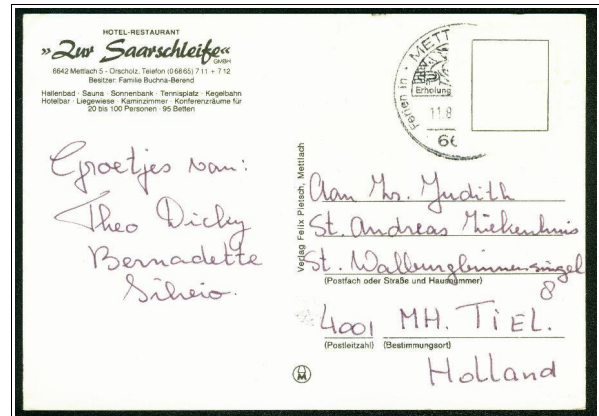 HOTEL-RESTAURANT
»Zur Saarschleife«
GMBH
6642 Mettlach 5 - Orscholz, Telefon (06865) 711 + 712
Besitzer: Familie Buchna-Berend
Hallenbad · Sauna · Sonnenbank · Tennisplatz · Kegelbahn
Hotelbar · Liegewiese · Kaminzimmer · Konferenzräume für
20 bis 100 Personen · 95 Betten
Ferien in · METT
Erholung
11.8
66
Groetjes van:
Theo Dicky
Bernadette
Silvio.
Verlag Felix Pietsch, Mettlach
Aan Judith
St. Andreas Ziekenhuis
St. Walburgbinnensingel
(Postfach oder Straße und Hausnummer)
8
4001 MH. TIEL.
(Postleitzahl) (Bestimmungsort)
Holland